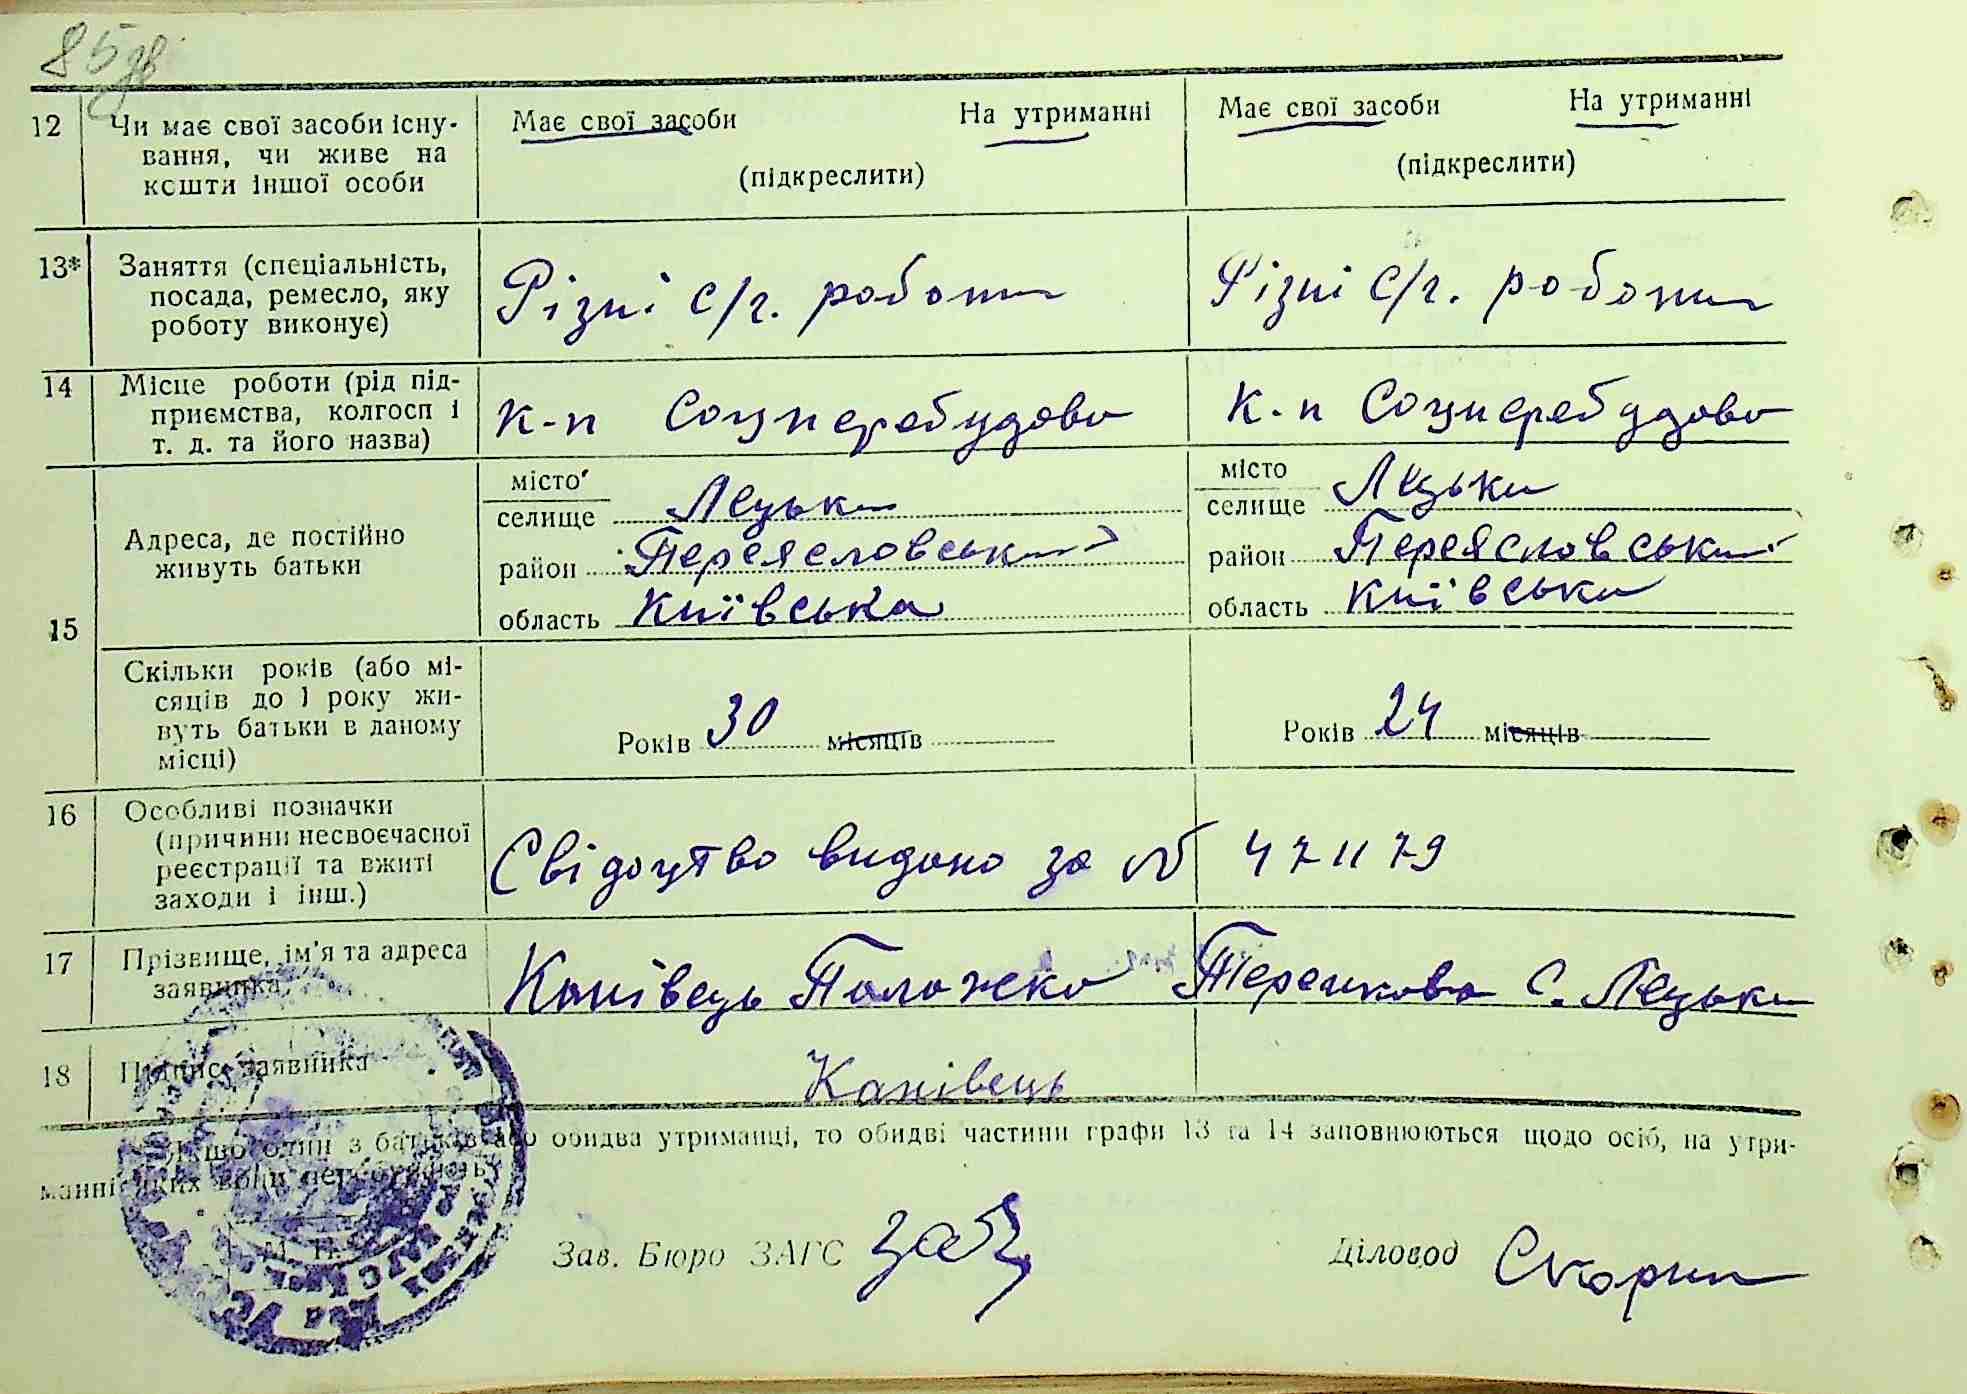 85 зв
12 Чи має свої засоби існу-
вання, чи живе на
кошти іншої особи
Має свої засоби На утриманні
(підкреслити)
Має свої засоби На утриманні
(підкреслити)
13* Заняття (спеціальність,
посада, ремесло, яку
роботу виконує)
Різні с/г. роботи
Різні с/г. роботи
14 Місце роботи (рід під-
приємства, колгосп і
т. д. та його назва)
к-п Соцперебудова
к-п Соцперебудова
15
Адреса, де постійно
живуть батьки
місто
селище Лецьки
район Переясловський
область Київська
місто
селище Лецьки
район Переясловський
область Київська
Скільки років (або мі-
сяців до 1 року жи-
вуть батьки в даному
місці)
Років 30 місяців
Років 24 місяців
16 Особливі позначки
(причини несвоєчасної
реєстрації та вжиті
заходи і інш.)
Свідоцтво видано за № 471179
17 Прізвище, ім'я та адреса
заявника
Канівець Палажка с. Лецьки
18 Підпис заявника
Канівець
Якщо один з батьків або обидва утриманці, то обидві частини графи 13 та 14 заповнюються щодо осіб, на утри-
манні яких вони перебувають
М. П.
Зав. Бюро ЗАГС
Діловод